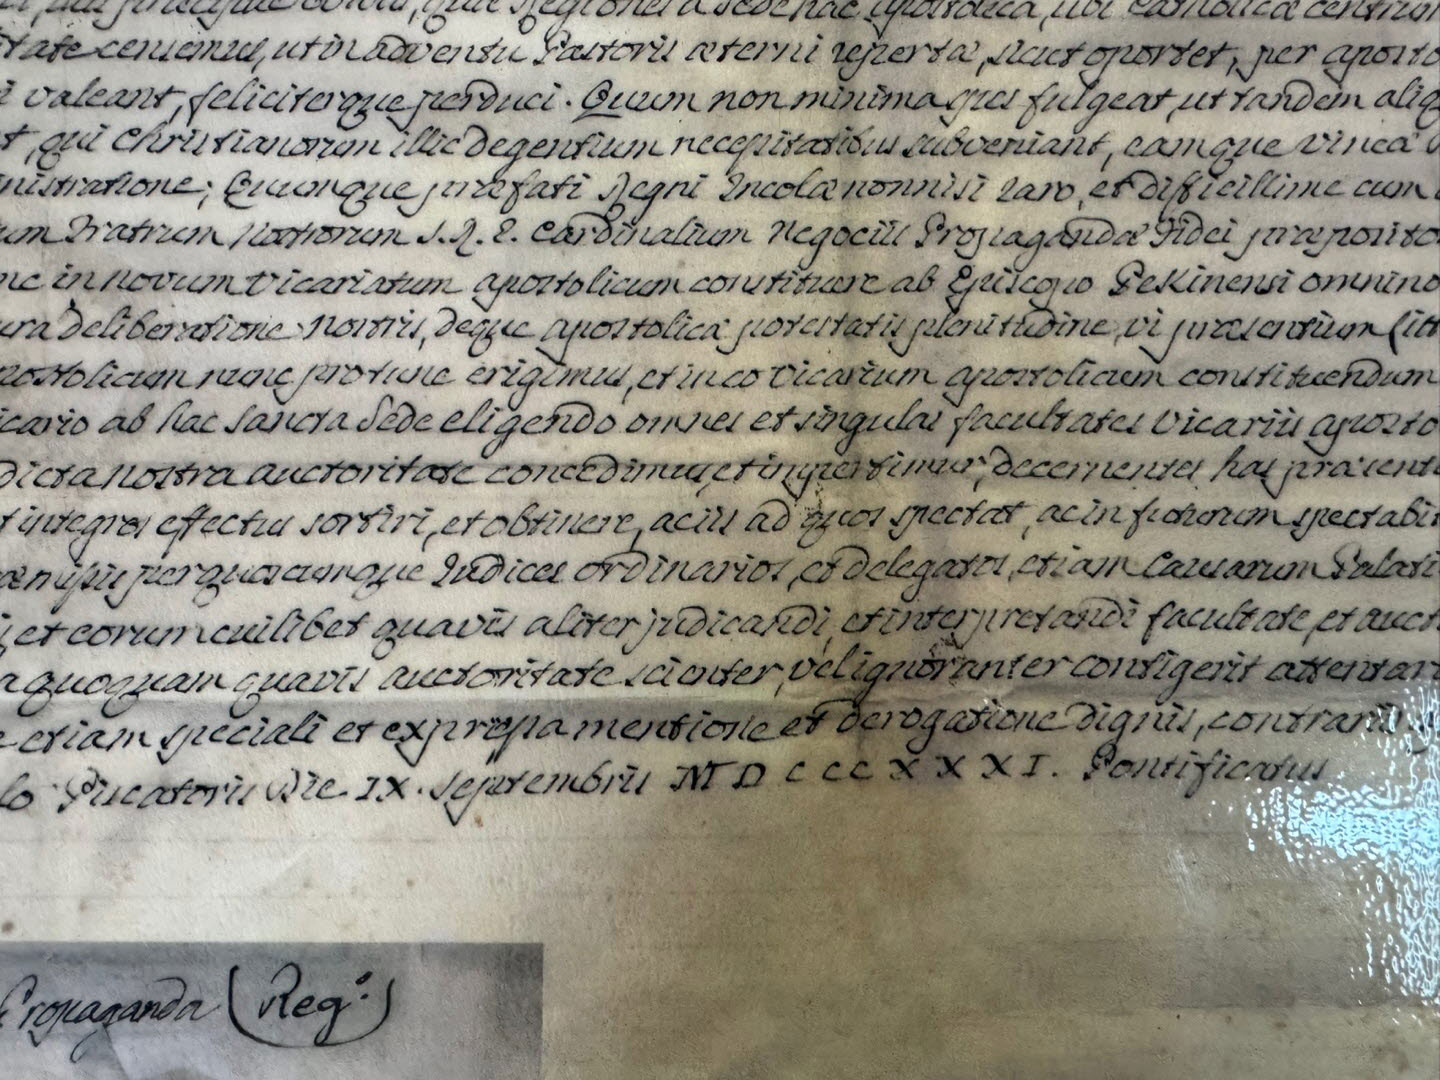 quae Regiones a Sede hac apostolica, ubi Catholicae centrum
itate censemus, ut in adventu Pastoris aeterni reperta, sicut oportet, per aposto
i valeant, feliciterque perduci. Quum non minima spes fulgeat, ut tandem aliq
t, qui Christianorum illic degentium necessitatibus subveniant, eamque vinea
nistratione; Quumque praefati Regni Incolae nonnisi raro, et difficillime cum
um Fratrum Nostrorum S. R. E. Cardinalium Negociis Propagandae Fidei praeposito
nc in novum Vicariatum apostolicum constituere ab Episcopo Pekinensi omnino
ura deliberatione nostris, deque apostolica potestatis plenitudine, vi praesentium litt
postolicum nunc pro tunc erigimus, et in eo Vicarium apostolicum constituendum
icario ab hac Sancta Sede eligendo omnes et singulas facultates Vicariis aposto
dicta nostra auctoritate concedimus, et impertimur; decernentes has praesent
t integros effectus sortiri, et obtinere, ac iis ad quos spectat, ac in futurum spectabi
per quoscumque Iudices ordinarios, et delegatos, etiam Causarum Palati
i, et eorum cuilibet quavis aliter judicandi, et interpretandi facultate, et auct
a quoquam quavis auctoritate scienter, vel ignoranter contigerit attentar
e etiam speciali et expressa mentione et derogatione dignis, contrariis
lo Piscatoris Die IX. Septembris MDCCCXXXI. Pontificatus
Propaganda (Reg.º)